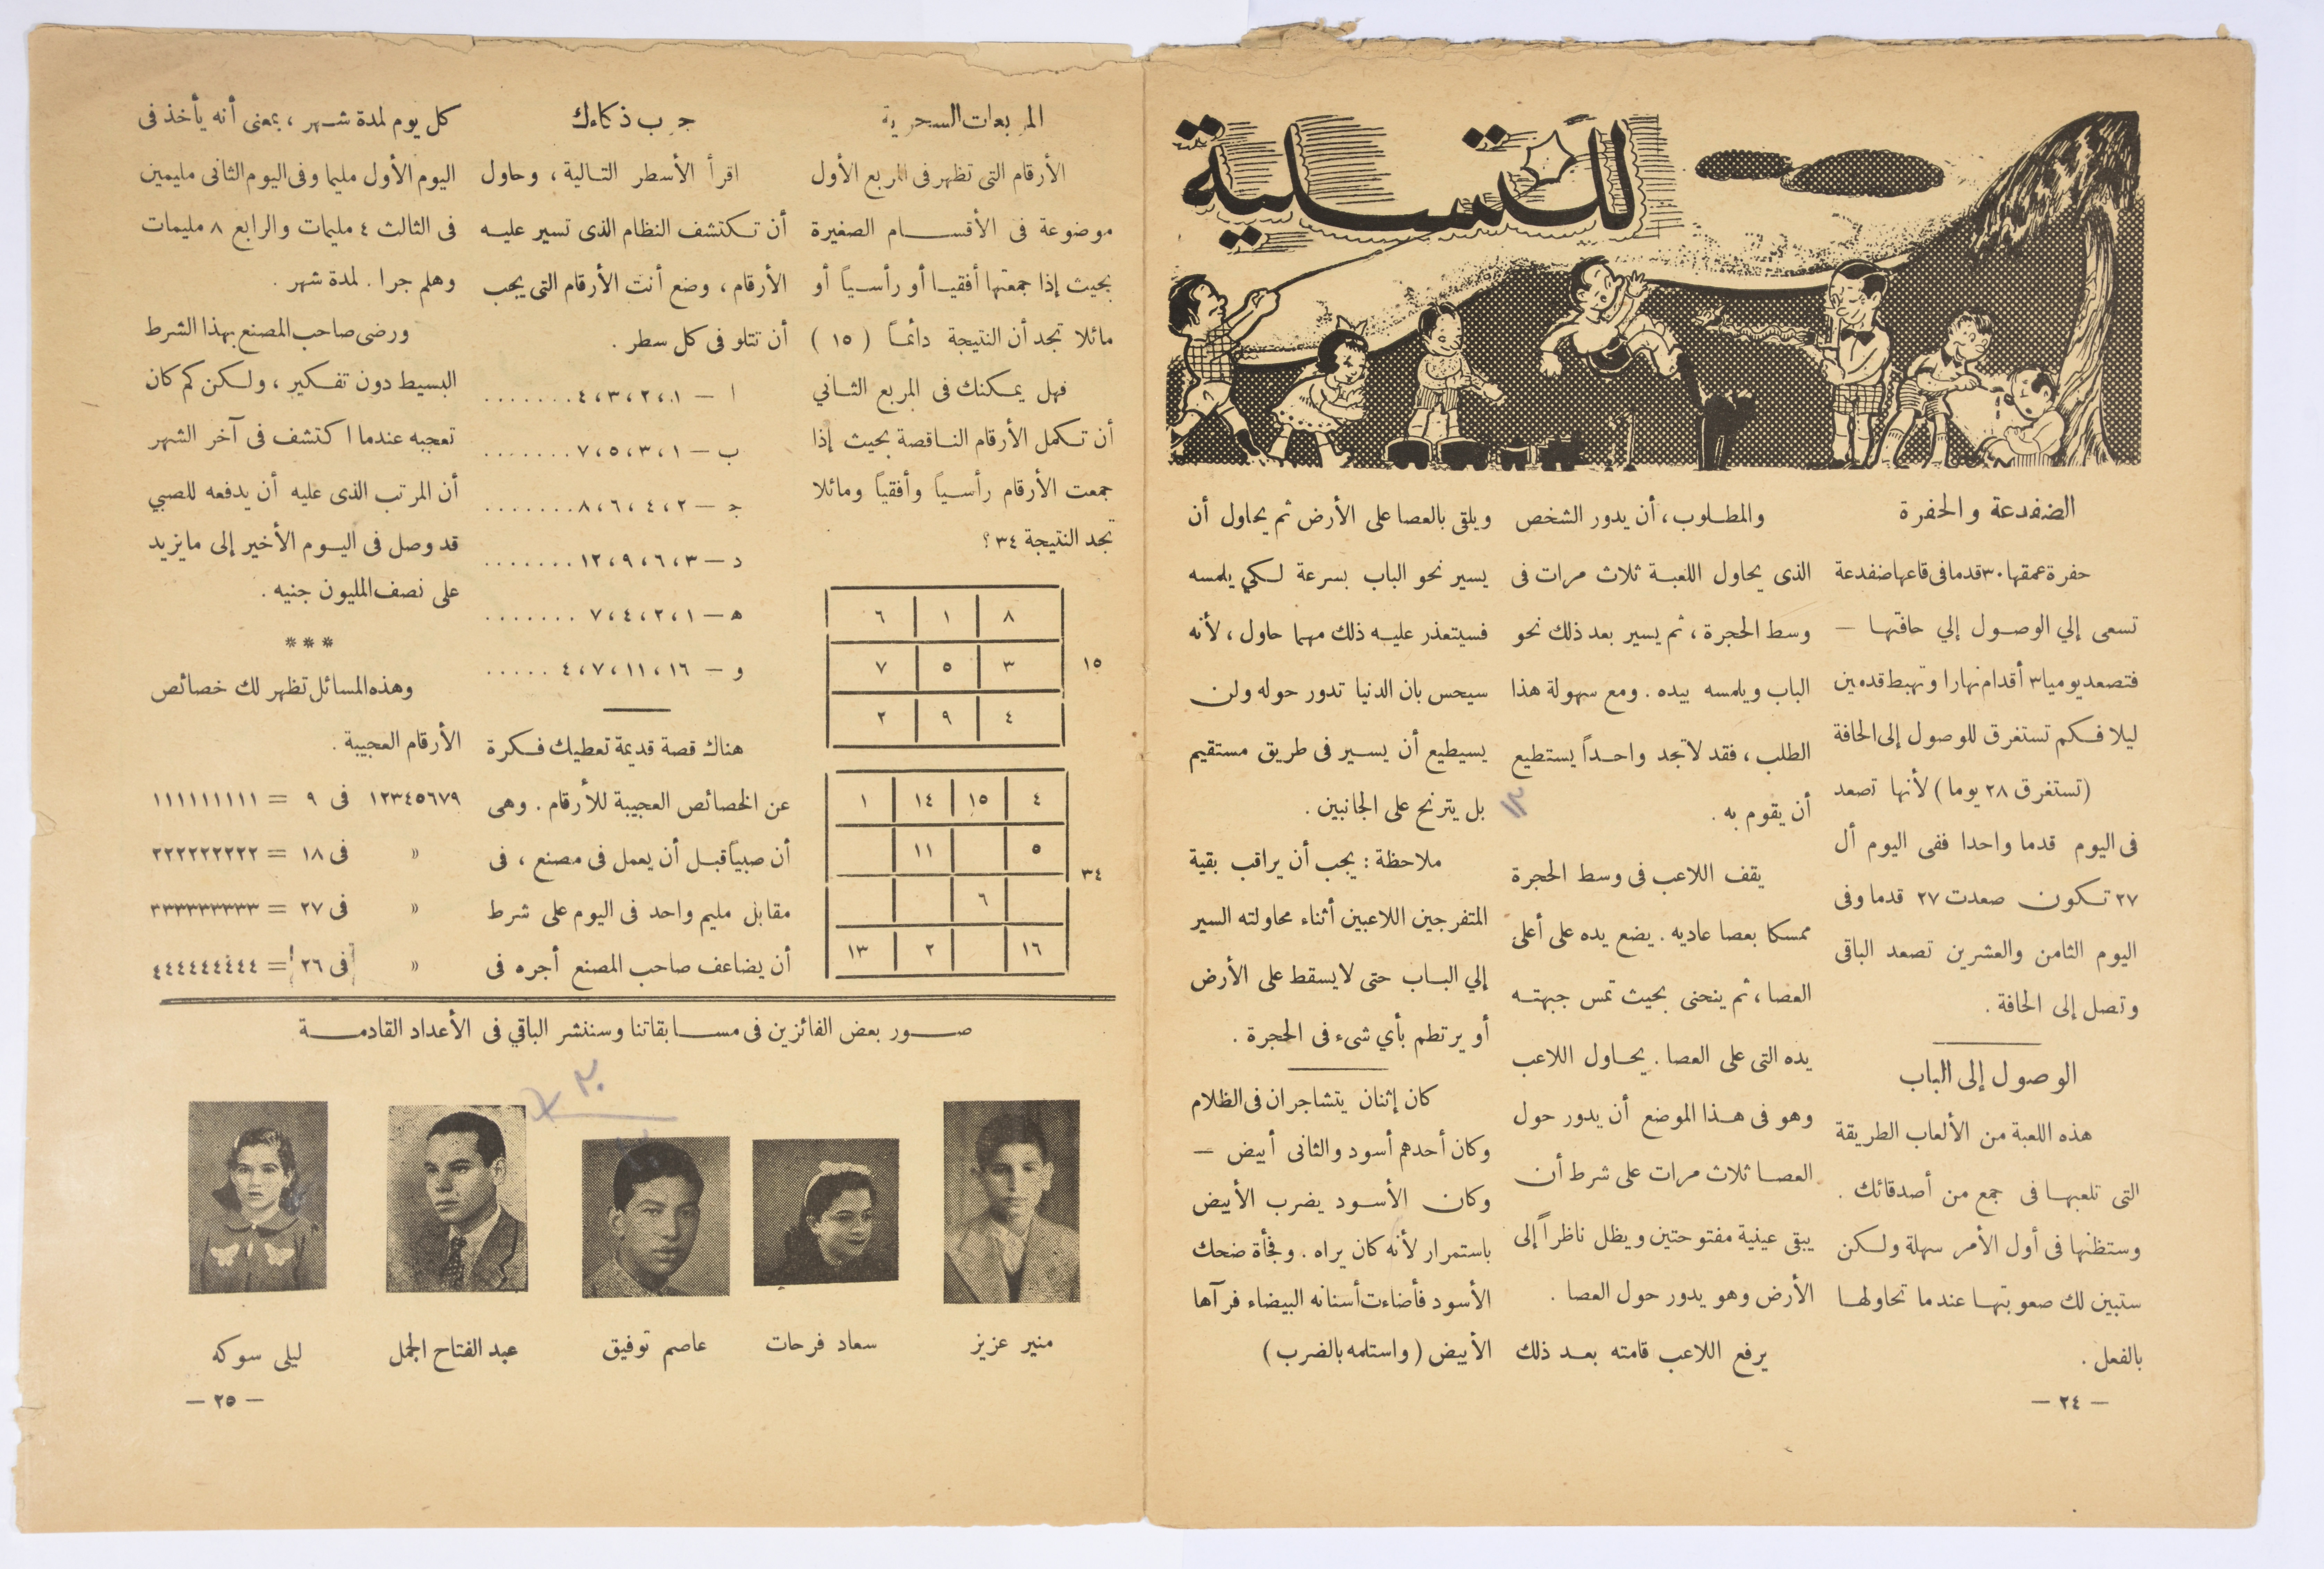 للتسلية
الضفدعة والحفرة
حفرة عمقها ٣٠ قدما فى قاعها ضفدعة
تسعى إلي الوصول إلي حافتها —
فتصعد يوميا ٣ أقدام نهارا وتهبط قدمين
ليلا فكم تستغرق للوصول إلى الحافة
(تستغرق ٢٨ يوما) لأنها تصعد
فى اليوم قدما واحدا ففى اليوم أل
٢٧ تكون صعدت ٢٧ قدما وفى
اليوم الثامن والعشرين تصعد الباقى
وتصل إلى الحافة .
الوصول إلى الباب
هذه اللعبة من الألعاب الطريقة
التى تلعبها فى جمع من أصدقائك .
وستظنها فى أول الأمر سهلة ولكن
ستبين لك صعوبتها عندما تحاولها
بالفعل .
— ٢٤ —
والمطلوب ، أن يدور الشخص
الذى يحاول اللعبة ثلاث مرات فى
وسط الحجرة ، ثم يسير بعد ذلك نحو
الباب ويلمسه بيده . ومع سهولة هذا
الطلب ، فقد لاتجد واحداً يستطيع
أن يقوم به .
يقف اللاعب فى وسط الحجرة
ممسكا بعصا عاديه . يضع يده على أعلى
العصا ، ثم ينحنى بحيث تمس جبهته
يده التى على العصا . يحاول اللاعب
وهو فى هذا الموضع أن يدور حول
العصا ثلاث مرات على شرط أن
يبقى عينية مفتوحتين ويظل ناظراً إلى
الأرض وهو يدور حول العصا .
يرفع اللاعب قامته بعد ذلك
ويلقى بالعصا على الأرض ثم يحاول أن
يسير نحو الباب بسرعة لكي يلمسه
فسيتعذر عليه ذلك مهما حاول ، لأنه
سيحس بان الدنيا تدور حوله ولن
يسيطيع أن يسير فى طريق مستقيم
بل يترنح على الجانبين .
ملاحظة : يجب أن يراقب بقية
المتفرجين اللاعبين أثناء محاولته السير
إلي الباب حتى لايسقط على الأرض
أو يرتطم بأي شىء فى الحجرة .
كان إثنان يتشاجران فى الظلام
وكان أحدهم أسود والثانى أبيض —
وكان الأسود يضرب الأبيض
باستمرار لأنه كان يراه . وفجأة ضحك
الأسود فأضاءت أسنانه البيضاء فرآها
الأبيض (واستلمه بالضرب)
المربعات السحرية
الأرقام التى تظهر فى المربع الأول
موضوعة فى الأقسام الصغيرة
بحيث إذا جمعتها أفقيا أو رأسياً أو
مائلا تجد أن النتيجة دائماً (١٥)
فهل يمكنك فى المربع الثاني
أن تكمل الأرقام الناقصة بحيث إذا
جمعت الأرقام رأسياً وأفقياً ومائلا
تجد النتيجة ٣٤ ؟
٨ ١ ٦
١٥ ٣ ٥ ٧
٤ ٩ ٢
٤ ١٥ ١٤ ١
٥ ١١
٣٤
٦
١٦ ٢ ١٣
جرب ذكاءك
اقرأ الأسطر التالية ، وحاول
أن تكتشف النظام الذى تسير عليه
الأرقام ، وضع أنت الأرقام التى يجب
أن تتلو فى كل سطر .
ا — ١ ، ٢ ، ٣ ، ٤ . . . . . . .
ب — ١ ، ٣ ، ٥ ، ٧ . . . . . . .
ج — ٢ ، ٤ ، ٦ ، ٨ . . . . . . .
د — ٣ ، ٦ ، ٩ ، ١٢ . . . . . . .
ه — ١ ، ٢ ، ٤ ، ٧ . . . . . . .
و — ١٦ ، ١١ ، ٧ ، ٤ . . . . .
هناك قصة قديمة تعطيك فكرة
عن الخصائص العجيبة للأرقام . وهى
أن صبياً قبل أن يعمل فى مصنع ، فى
مقابل مليم واحد فى اليوم على شرط
أن يضاعف صاحب المصنع أجره فى
كل يوم لمدة شهر ، بمعنى أنه يأخذ فى
اليوم الأول مليما وفى اليوم الثانى مليمين
فى الثالث ٤ مليمات والرابع ٨ مليمات
وهلم جرا . لمدة شهر .
ورضى صاحب المصنع بهذا الشرط
البسيط دون تفكير ، ولكن كم كان
تعجبه عندما اكتشف فى آخر الشهر
أن المرتب الذى عليه أن يدفعه للصبي
قد وصل فى اليوم الأخير إلى مايزيد
على نصف المليون جنيه .
***
وهذه المسائل تظهر لك خصائص
الأرقام العجيبة .
١٢٣٤٥٦٧٩ فى ٩ = ١١١١١١١١١
» فى ١٨ = ٢٢٢٢٢٢٢٢٢
» فى ٢٧ = ٣٣٣٣٣٣٣٣٣
» فى ٢٦ = ٤٤٤٤٤٤٤٤٤
صور بعض الفائزين فى مسابقاتنا وسننشر الباقي فى الأعداد القادمة
منير عزيز
سعاد فرحات
عاصم توفيق
عبد الفتاح الجمل
ليلى سوكه
— ٢٥ —